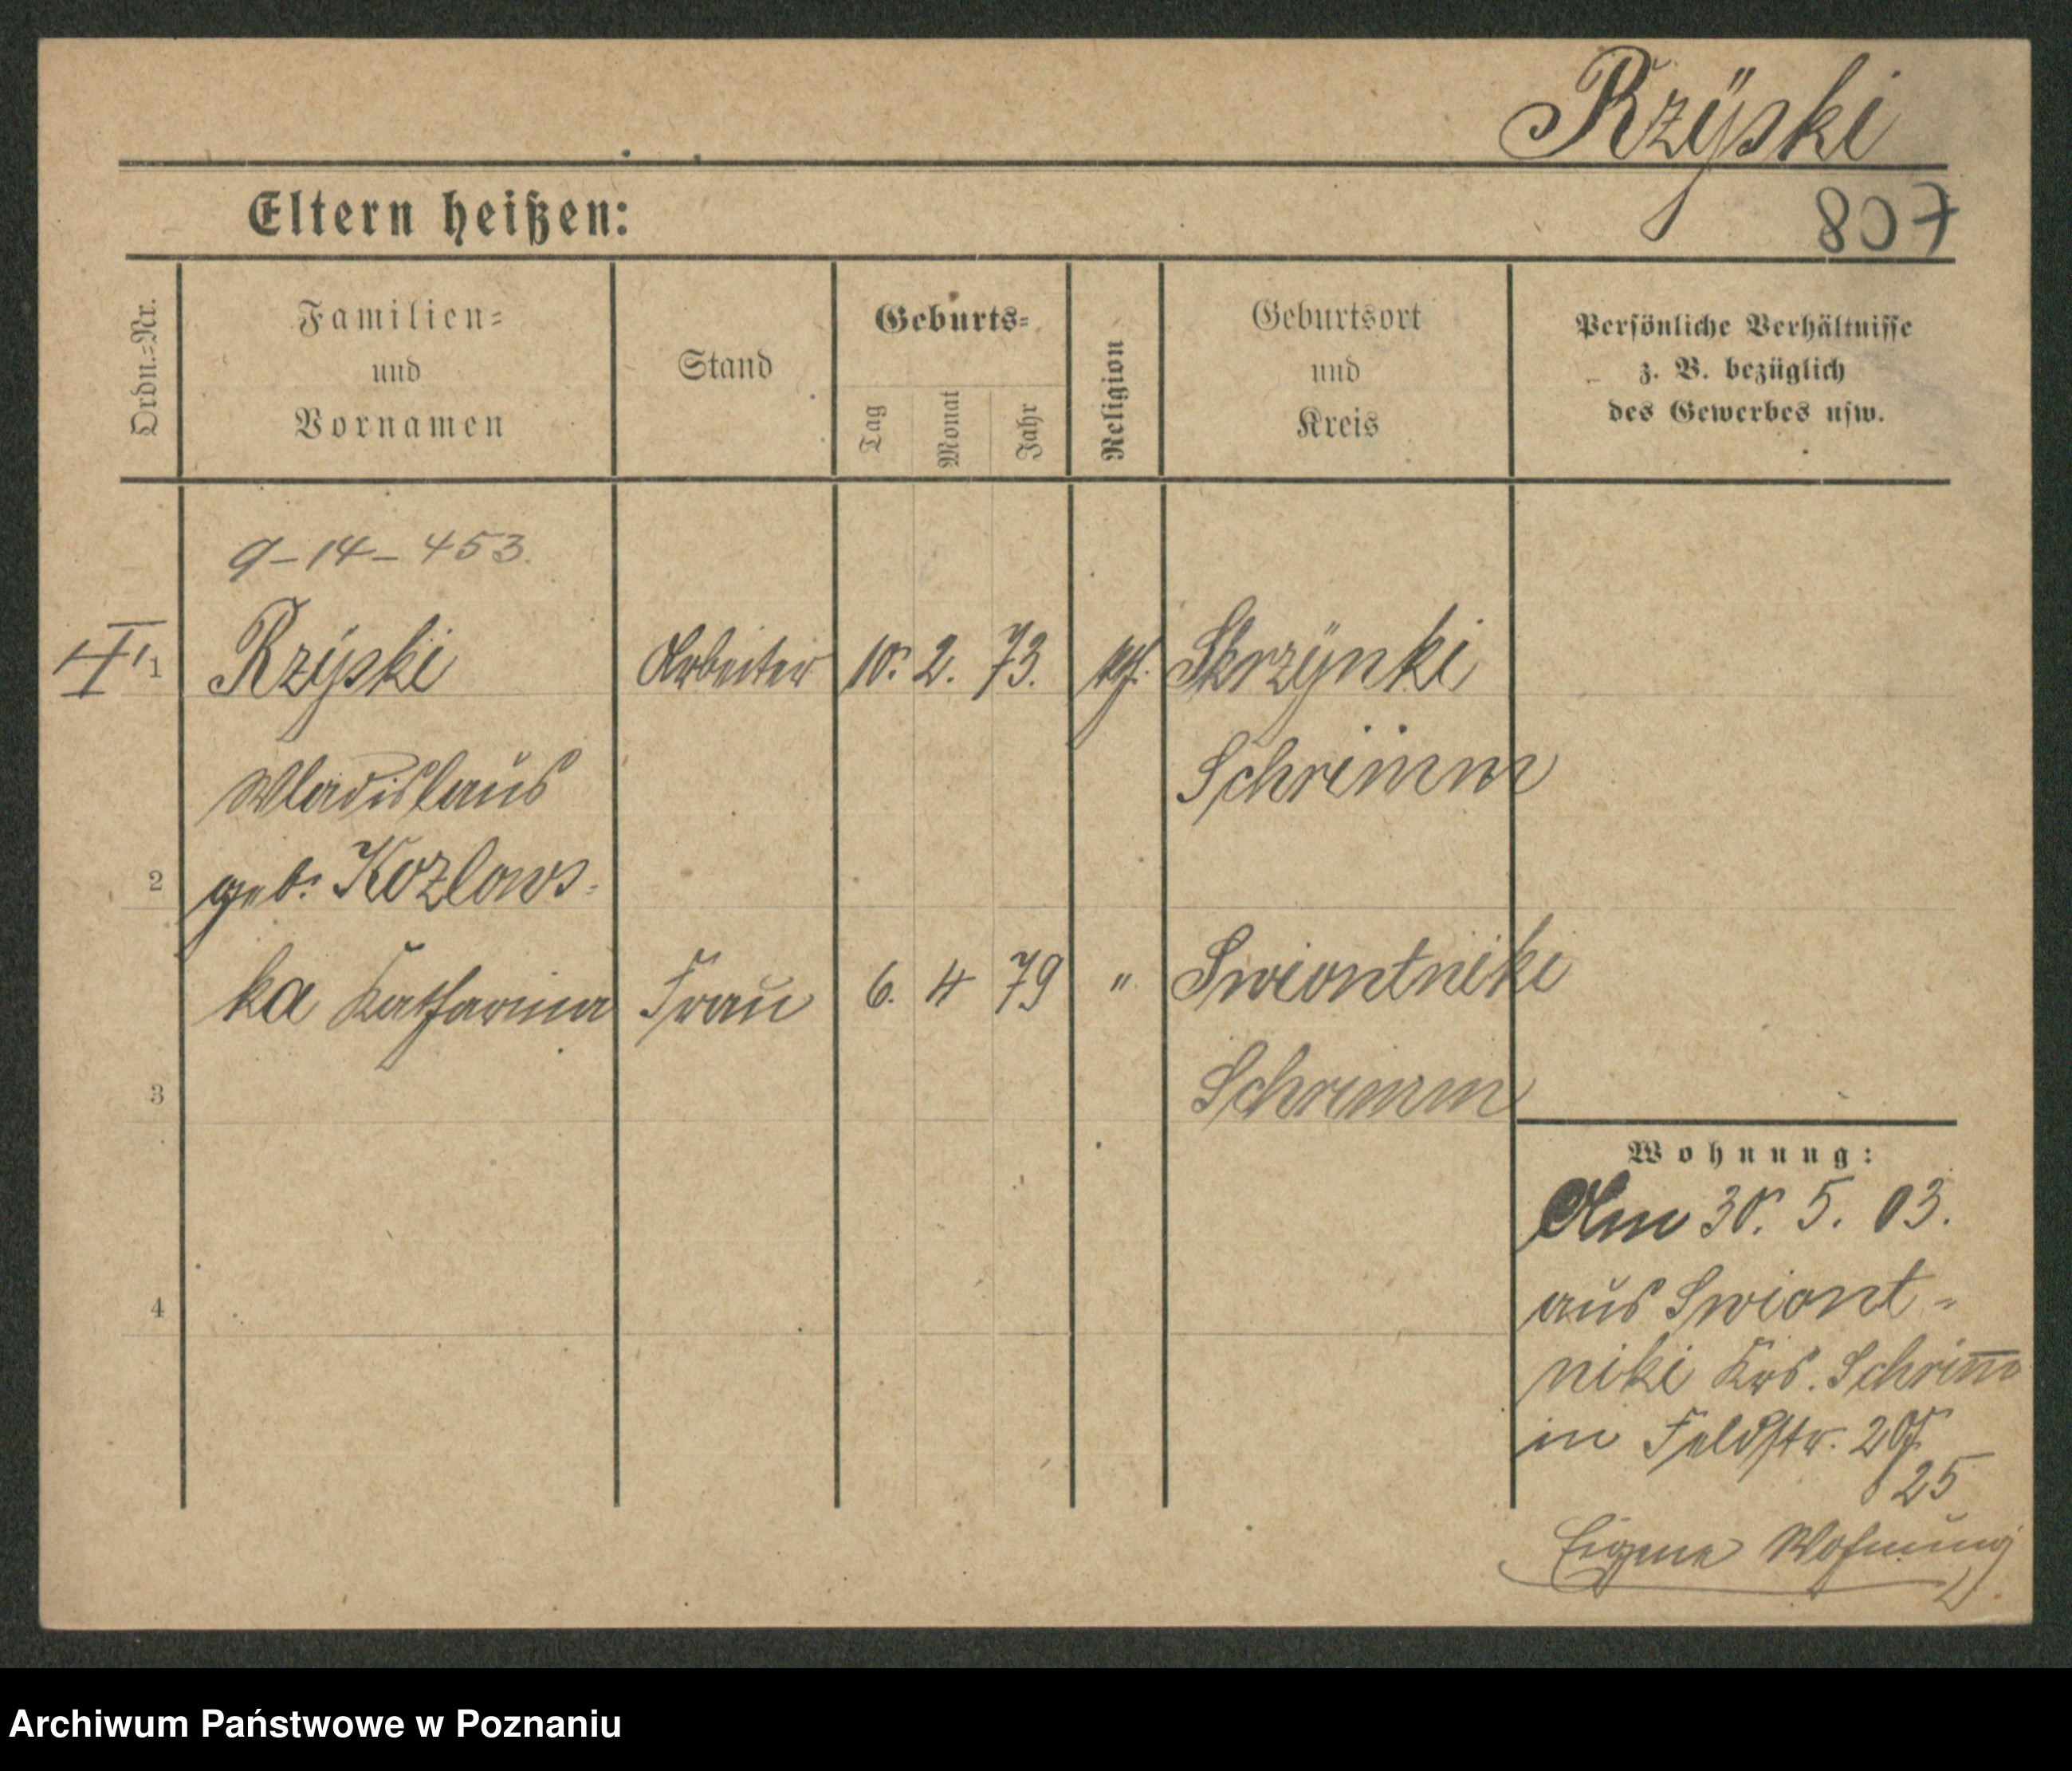 Rzÿski
807
Eltern heißen:
Ordn.=Nr.
Familien=
und
Vornamen
Stand
Geburts=
Tag
Monat
Jahr
Religion
Geburtsort
und
Kreis
Persönliche Verhältnisse
z. B. bezüglich
des Gewerbes usw.
9-14-453.
1 Rzÿski Arbeiter 10. 2. 73. Skrzÿnki
Wladislaus Schrimm
2 geb. Kozlows=
ka Katharina Frau 6. 4 79 " Swiontniki
3 Schrimm
Wohnung:
Am 30. 5. 03.
aus Swiont=
4
niki Krs. Schrim̅
in Feldstr.
25
Eigene Wohnung
Archiwum Państwowe w Poznaniu